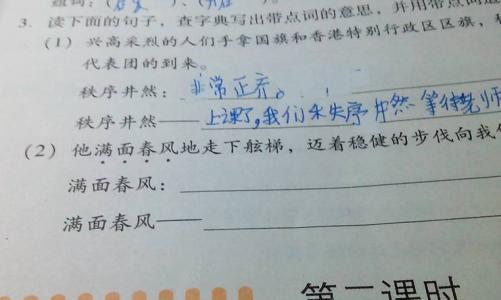 组词:( )、(
3. 读下面的句子,查字典写出带点词的意思,并用带点词造
(1) 兴高采烈的人们手拿国旗和香港特别行政区区旗,
代表团的到来。
秩序井然:非常正齐。
秩序井然——上课了,我们未失序井然等待老师
(2) 他满面春风地走下舷梯,迈着稳健的步伐向我
满面春风:
满面春风——
第二课时